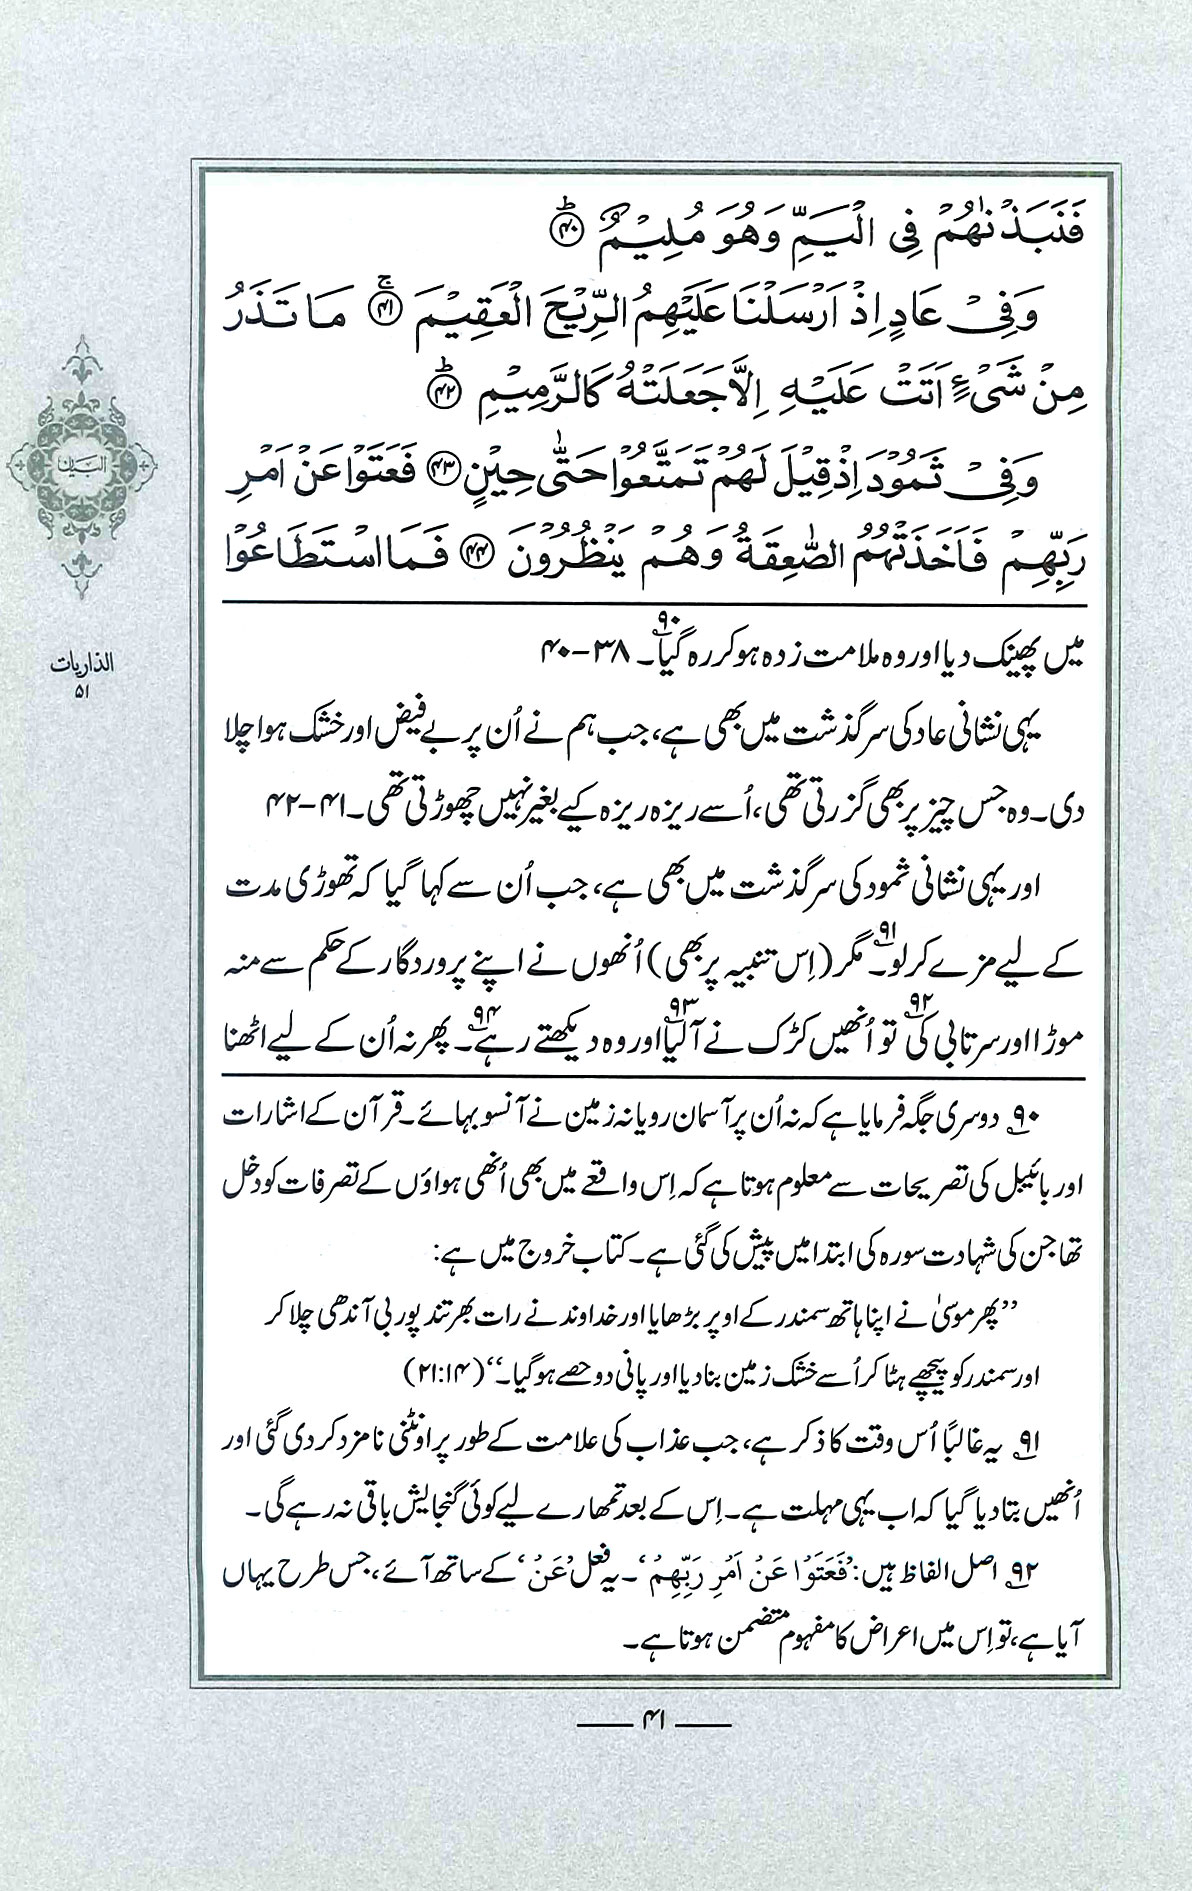 فَنَبَذْنٰهُمْ فِي الْيَمِّ وَهُوَ مُلِيْمٌ ﴿۴۰﴾ؕ
وَفِيْ عَادٍ اِذْ اَرْسَلْنَا عَلَيْهِمُ الرِّيْحَ الْعَقِيْمَ ﴿۴۱﴾ۚ مَا تَذَرُ
مِنْ شَيْءٍ اَتَتْ عَلَيْهِ اِلَّا جَعَلَتْهُ كَالرَّمِيْمِ ﴿۴۲﴾ؕ
وَفِيْ ثَمُوْدَ اِذْ قِيْلَ لَهُمْ تَمَتَّعُوْا حَتّٰى حِيْنٍ ﴿۴۳﴾ فَعَتَوْا عَنْ اَمْرِ
رَبِّهِمْ فَاَخَذَتْهُمُ الصّٰعِقَةُ وَهُمْ يَنْظُرُوْنَ ﴿۴۴﴾ فَمَا اسْتَطَاعُوْا
میں پھینک دیا اور وہ ملامت زدہ ہو کر رہ گیا۹۰۔ ۳۸-۴۰
یہی نشانی عاد کی سرگذشت میں بھی ہے، جب ہم نے اُن پر بے فیض اور خشک ہوا چلا
دی۔ وہ جس چیز پر بھی گزرتی تھی، اُسے ریزہ ریزہ کیے بغیر نہیں چھوڑتی تھی۔ ۴۱-۴۲
اور یہی نشانی ثمود کی سرگذشت میں بھی ہے، جب اُن سے کہا گیا کہ تھوڑی مدت
کے لیے مزے کر لو۹۱۔ مگر (اِس تنبیہ پر بھی) اُنھوں نے اپنے پروردگار کے حکم سے منہ
موڑا اور سرتابی کی۹۲ تو اُنھیں کڑک نے آ لیا۹۳ اور وہ دیکھتے رہے۹۴۔ پھر نہ اُن کے لیے اٹھنا
۹۰ دوسری جگہ فرمایا ہے کہ نہ اُن پر آسمان رویا نہ زمین نے آنسو بہائے۔ قرآن کے اشارات
اور بائیبل کی تصریحات سے معلوم ہوتا ہے کہ اِس واقعے میں بھی اُنھی ہواؤں کے تصرفات کو دخل
تھا جن کی شہادت سورہ کی ابتدا میں پیش کی گئی ہے۔ کتاب خروج میں ہے:
”پھر موسیٰ نے اپنا ہاتھ سمندر کے اوپر بڑھایا اور خداوند نے رات بھر تند پوربی آندھی چلا کر
اور سمندر کو پیچھے ہٹا کر اُسے خشک زمین بنا دیا اور پانی دو حصے ہو گیا۔“ (۲۱:۱۴)
۹۱ یہ غالباً اُس وقت کا ذکر ہے، جب عذاب کی علامت کے طور پر اونٹنی نامزد کر دی گئی اور
اُنھیں بتا دیا گیا کہ اب یہی مہلت ہے۔ اِس کے بعد تمھارے لیے کوئی گنجایش باقی نہ رہے گی۔
۹۲ اصل الفاظ ہیں: ’فَعَتَوْا عَنْ اَمْرِ رَبِّهِمْ‘۔ یہ فعل ’عَنْ‘ کے ساتھ آئے، جس طرح یہاں
آیا ہے، تو اِس میں اعراض کا مفہوم متضمن ہوتا ہے۔
البیان
الذاریات
۵۱
۴۱